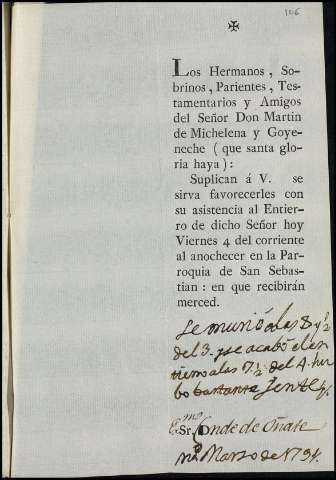 106
✠
Los Hermanos, So-
brinos, Parientes, Tes-
tamentarios y Amigos
del Señor Don Martin
de Michelena y Goye-
neche ( que santa glo-
ria haya ) :
Suplican á V. se
sirva favorecerles con
su asistencia al Entier-
ro de dicho Señor hoy
Viernes 4 del corriente
al anochecer en la Par-
roquia de San Sebas-
tian : en que recibirán
merced.
Se murió a las 8 y ½
del 3. y se acabó el en
tierro a las 7½ del 4. hu
bo bastante Jente
Exmo
Sr. Conde de Oñate
Marzo de 1794.